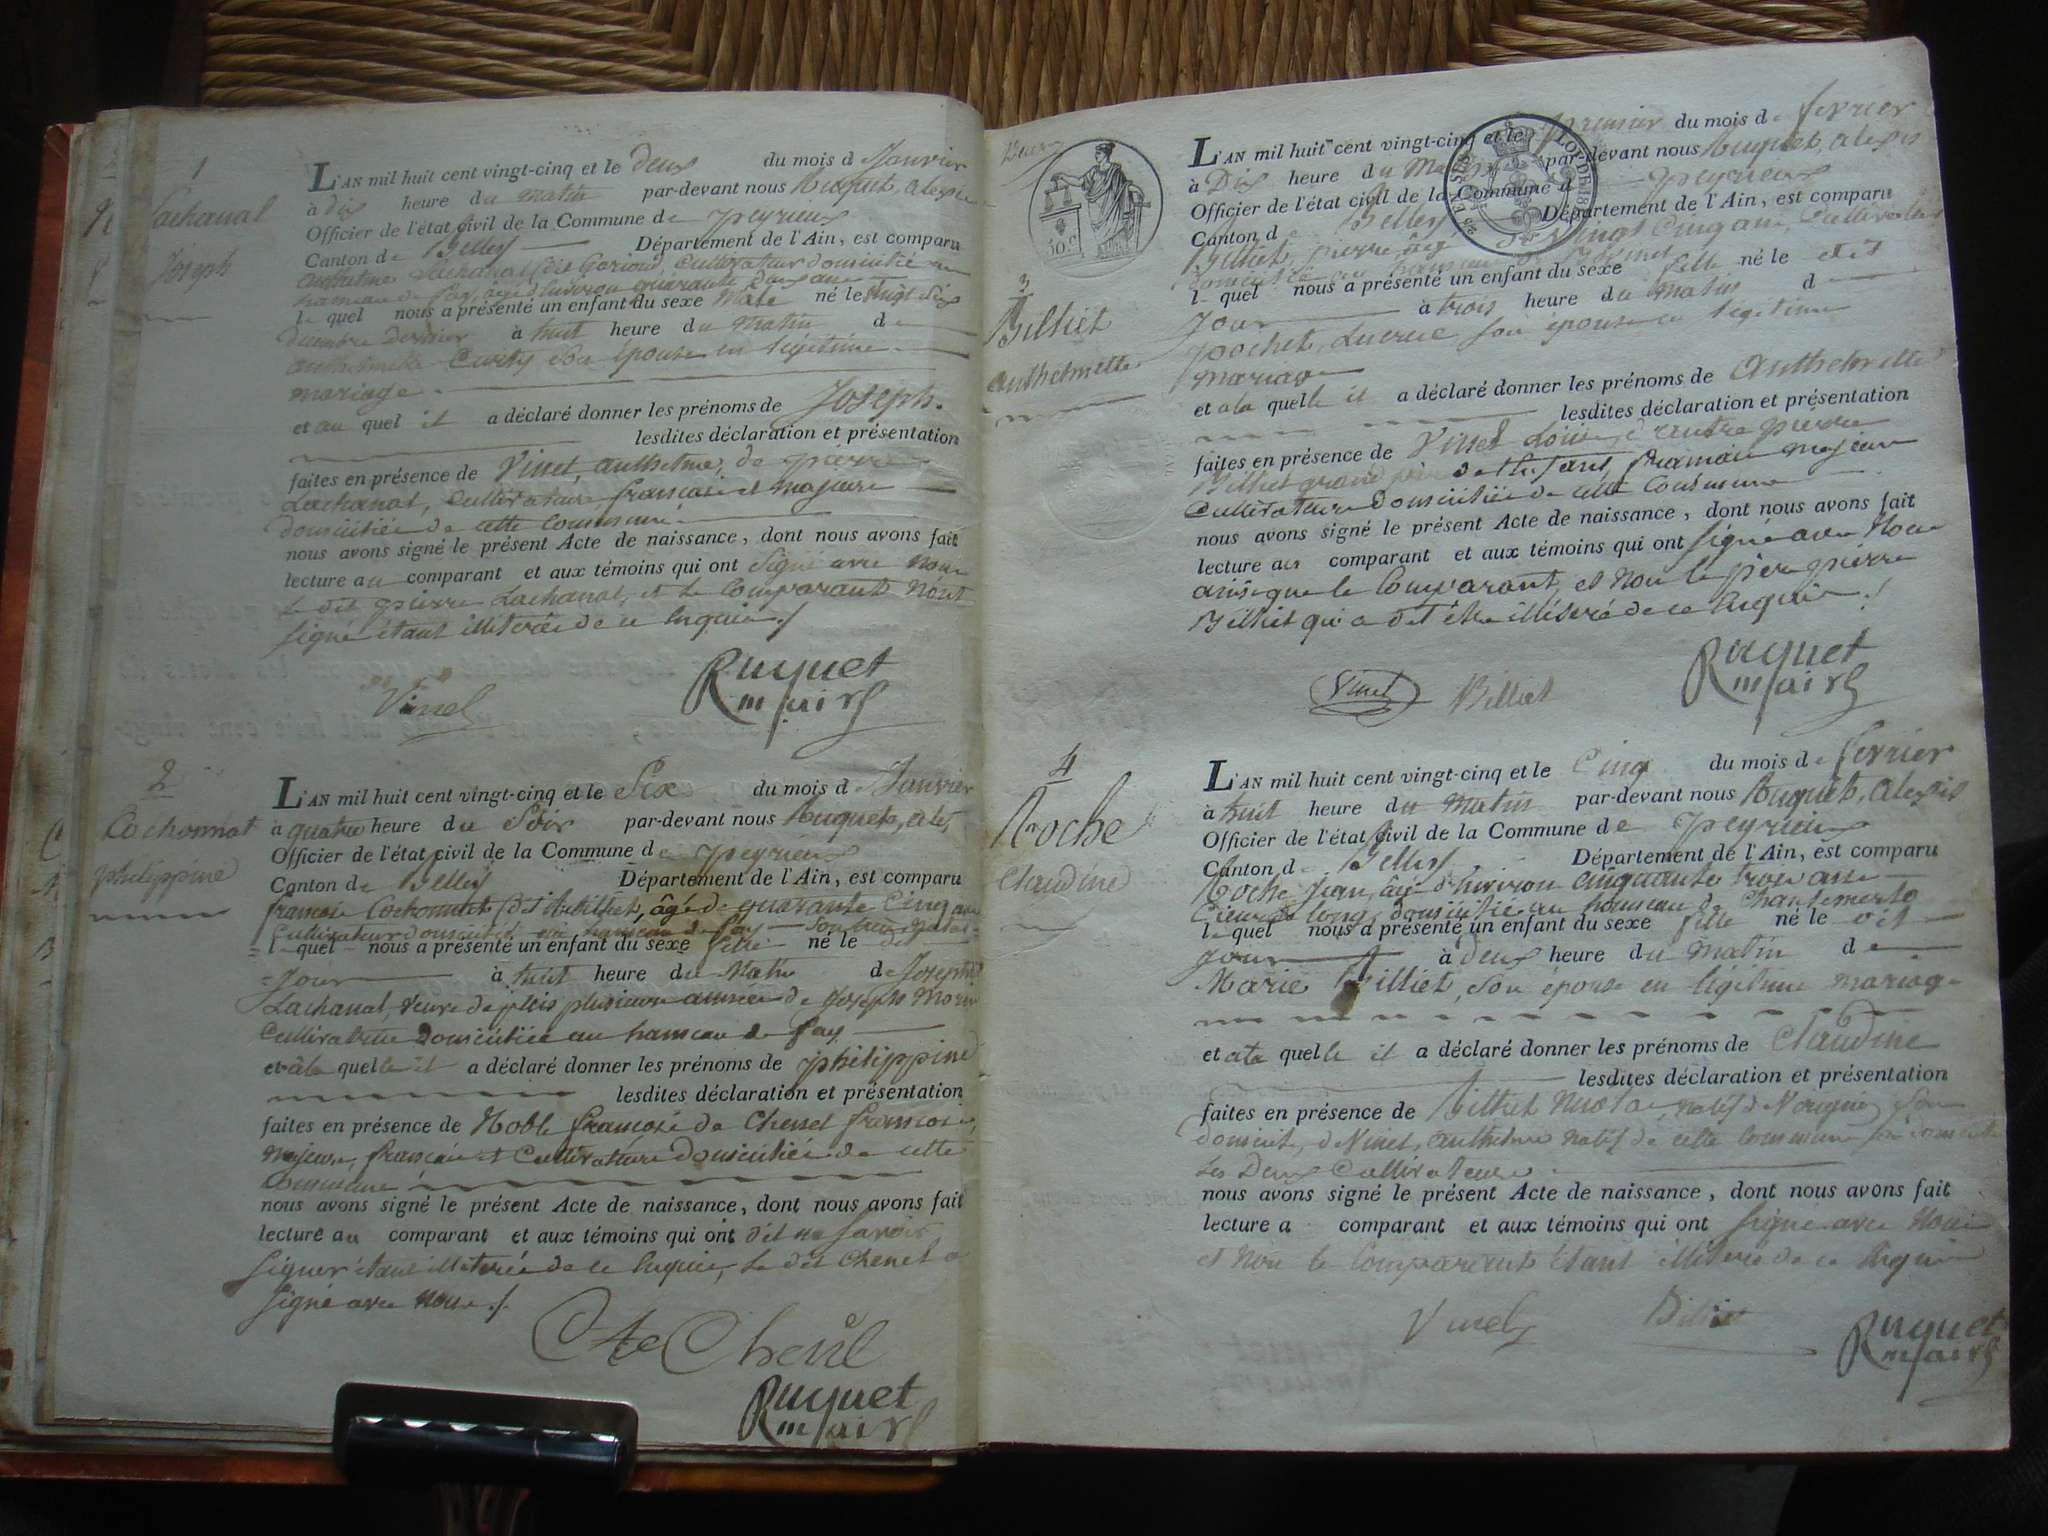 1
Lachanal
Joseph
L'AN mil huit cent vingt-cinq et le deux du mois d Janvier
à dix heure du matin par-devant nous Ruquet, alexis
Officier de l'état civil de la Commune de peyrieux
Canton de Belley Département de l'Ain, est comparu
anthelme Lachanal dit Cultivateur domicilié au
hameau de fay, âgé d'environ quarante deux ans
le quel nous a présenté un enfant du sexe Male né le vingt six
décembre dernier à huit heure du matin de
anthelmette son épouse en légitime
mariage
et au quel il a déclaré donner les prénoms de Joseph.
lesdites déclaration et présentation
faites en présence de Vinet, anthelme, de pierre
Lachanal, Cultivateurs francais et majeurs
domiciliés de cette commune
nous avons signé le présent Acte de naissance, dont nous avons fait
lecture au comparant et aux témoins qui ont signé avec nous
le dit pierre Lachanal, et le Comparant n'ont
signé étant illiterés de ce Enquis ./
Vinet
Ruquet
maire
2
Cochonnat
philippine
L'AN mil huit cent vingt-cinq et le Six du mois d Janvier
à quatre heure du Soir par-devant nous Ruquet, alexis
Officier de l'état civil de la Commune de peyrieux
Canton de Belley Département de l'Ain, est comparu
francois Cochonnat dit âgé de quarante Cinq ans
Cultivateur domicilié au hameau de fay
le quel nous a présenté un enfant du sexe fille né le dit
Jour à huit heure du Matin de Josephte
Lachanal, veuve depuis plusieurs années de Joseph Morin
Cultivatrice domiciliée au hameau de fay
et à la quelle il a déclaré donner les prénoms de philippine
lesdites déclaration et présentation
faites en présence de Noble francois de Chenet francois,
Majeurs, francais et Cultivateurs domiciliés de cette
Commune
nous avons signé le présent Acte de naissance, dont nous avons fait
lecture au comparant et aux témoins qui ont dit ne savoir
signer étant illiterés de ce Enquis, le dit Chenet a
signé avec nous ./
Ruquet
maire
30 C
3
Billiet
anthelmette
L'AN mil huit cent vingt-cinq et le premier du mois de fevrier
à Dix heure du Matin par-devant nous Ruquet, alexis
Officier de l'état civil de la Commune d peyrieux
Canton d Belley Département de l'Ain, est comparu
Billiet, pierre, âgé de vingt Cinq ans, Cultivateur
domicilié au hameau de
le quel nous a présenté un enfant du sexe fille né le dit
Jour à trois heure du matin d
pochet, Lucrece son épouse en légitime
mariage
et a la quelle il a déclaré donner les prénoms de Anthelmette
lesdites déclaration et présentation
faites en présence de Vinet Louis, d'autre pierre
Billiet grand père de l'enfant, francais majeurs
Cultivateurs domiciliés de cette Commune
nous avons signé le présent Acte de naissance, dont nous avons fait
lecture au comparant et aux témoins qui ont signé avec Nous
ainsi que le Comparant, et Non le père pierre
Billiet qui a dit être illiteré de ce Enquis ./
Vinet Billiet
Ruquet
maire
4
Roche
Claudine
L'AN mil huit cent vingt-cinq et le Cinq du mois de fevrier
à huit heure du matin par-devant nous Ruquet, Alexis
Officier de l'état civil de la Commune de peyrieux
Canton d Belley Département de l'Ain, est comparu
Roche Jean, âgé d'environ cinquante trois ans
Cieur de long, domicilié au hameau de Chantemerle
le quel nous a présenté un enfant du sexe fille né le dit
jour à deux heure du Matin de
Marie Billiet, Son épouse en légitime mariage
et a la quelle il a déclaré donner les prénoms de Claudine
lesdites déclaration et présentation
faites en présence de Billiet natif de
domicilié, de Vinet, anthelme natif de cette commune
Les Deux Cultivateurs
nous avons signé le présent Acte de naissance, dont nous avons fait
lecture a comparant et aux témoins qui ont signé avec Nous
et Non le Comparant étant illiteré de ce Enquis
Vinet Billiet
Ruquet
maire